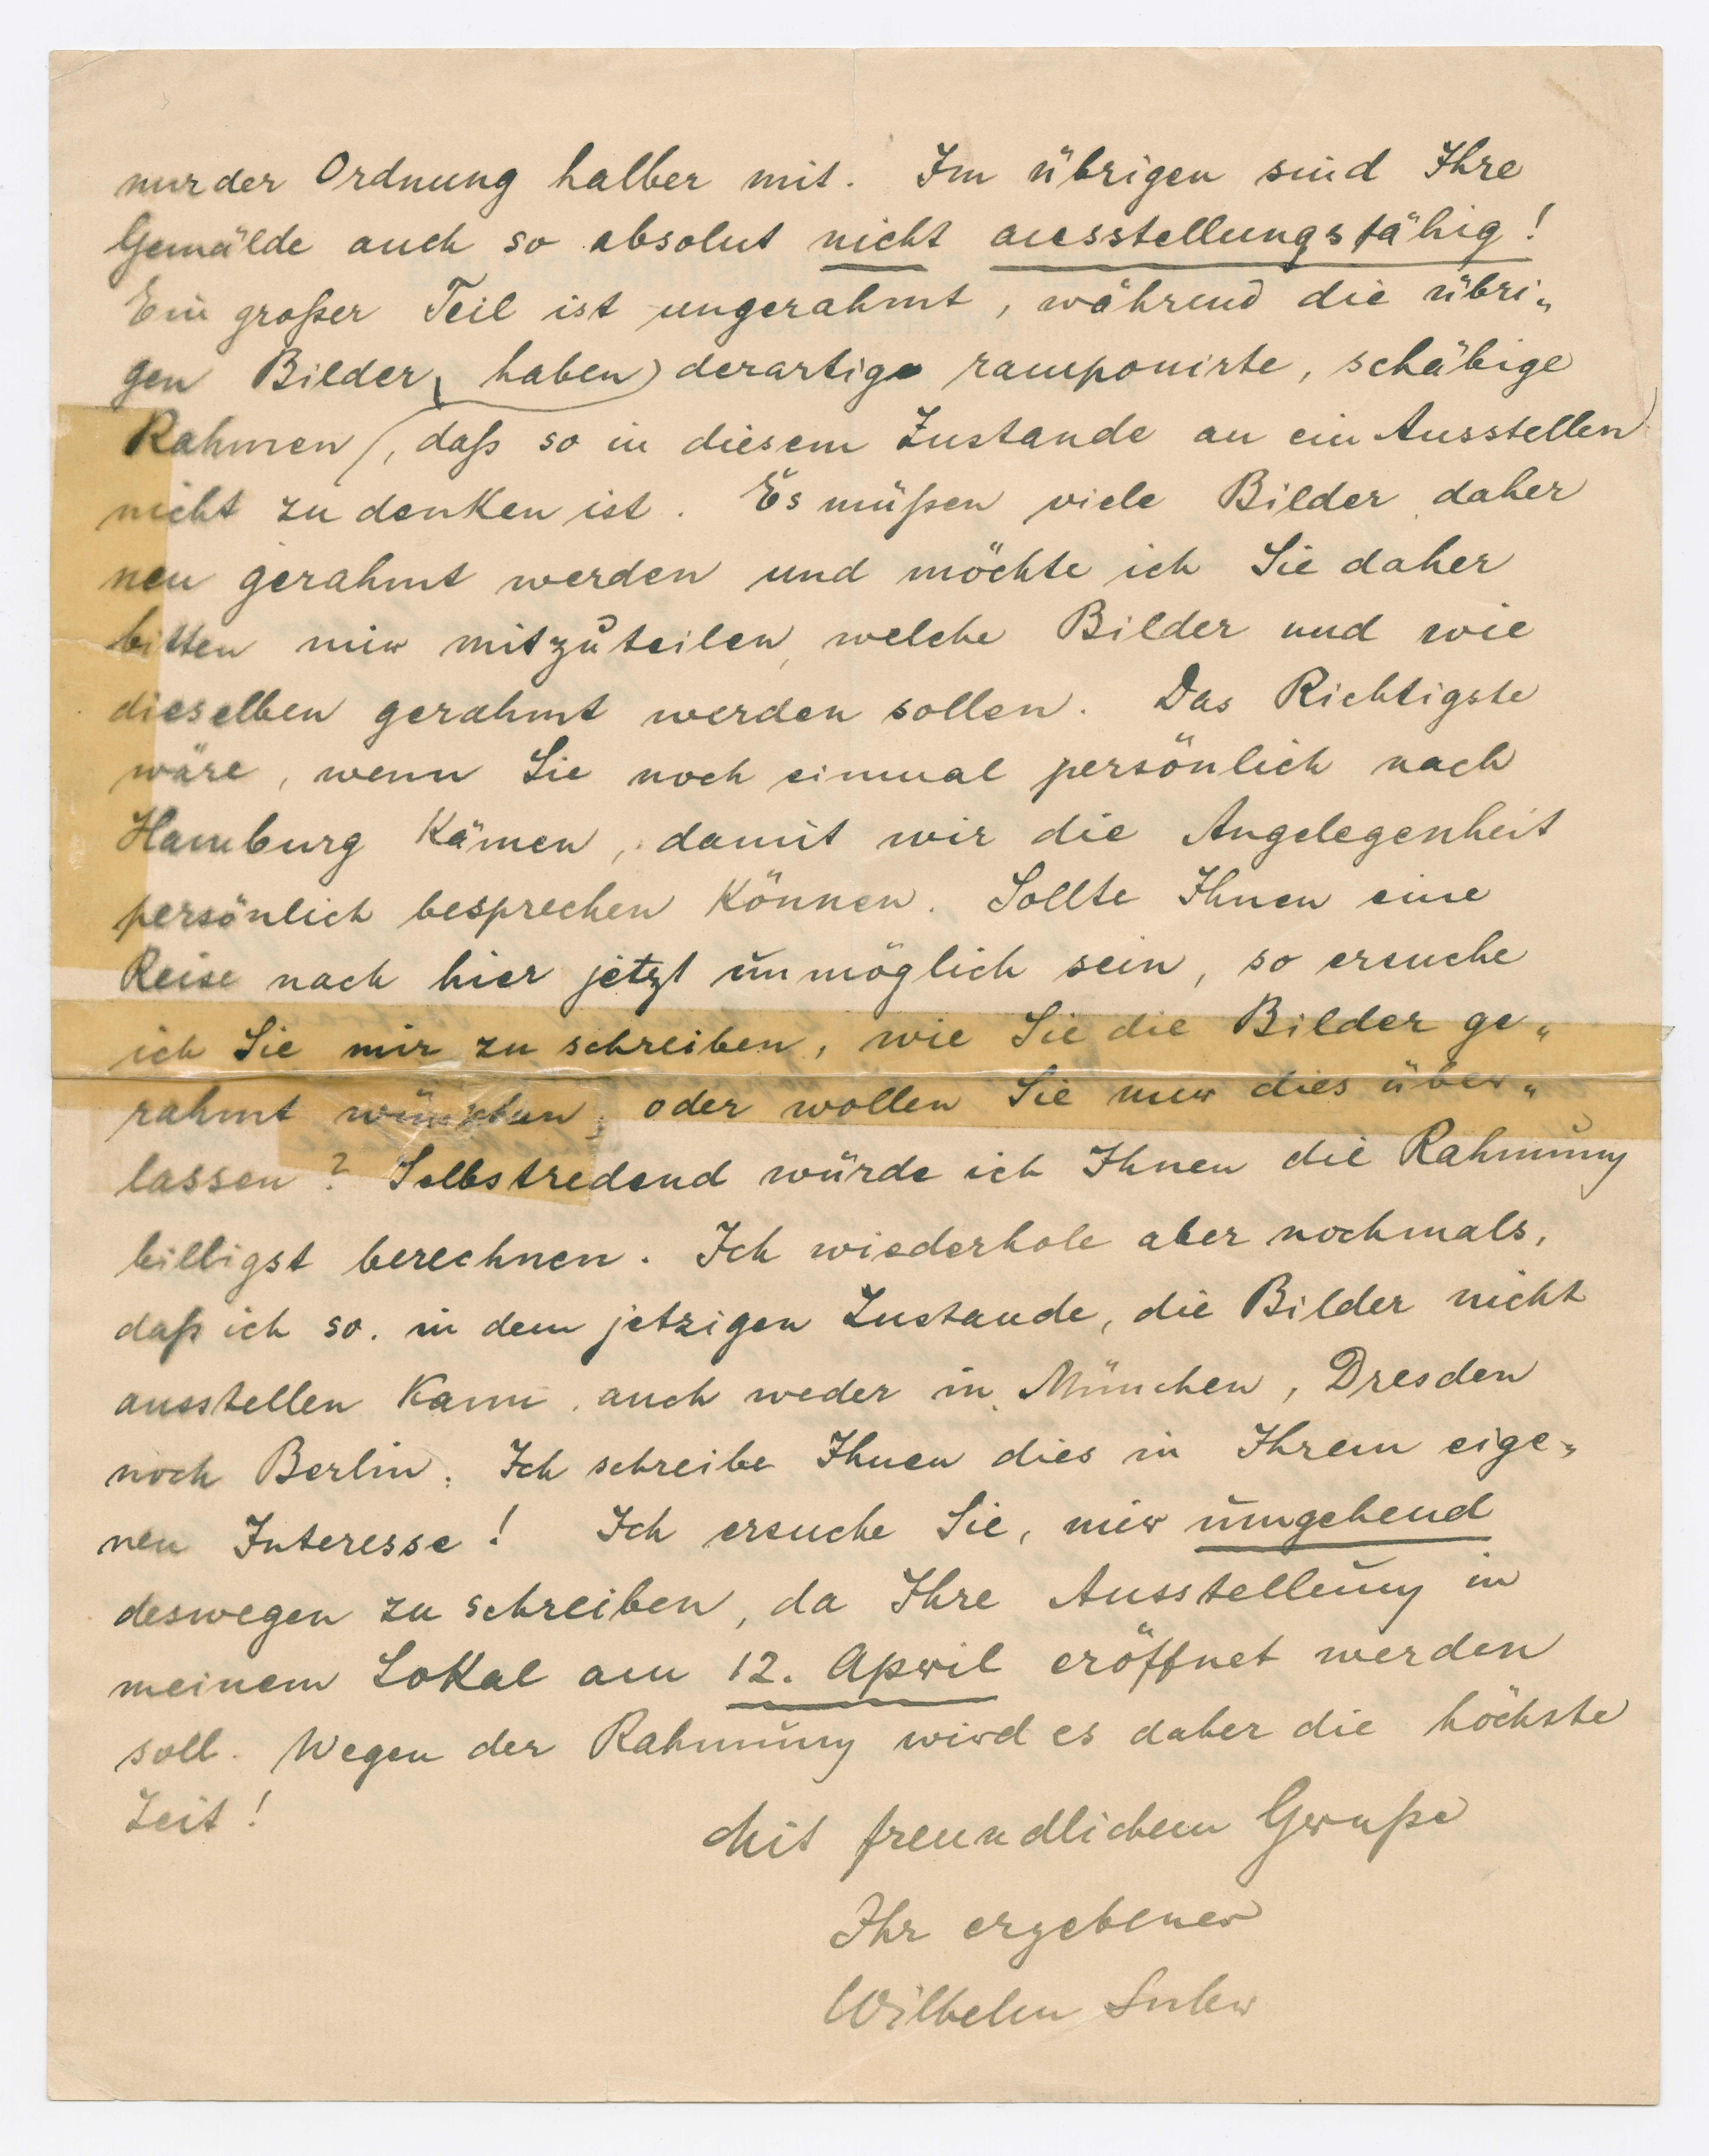 nur der Ordnung halber mit. Im übrigen sind Ihre
Gemälde auch so absolut nicht ausstellungsfähig!
Ein großer Teil ist ungerahmt, während die übri„
gen Bilder, haben) derartige ramponirte, schäbige
Rahmen (, daß so in diesem Zustande an ein Ausstellen
nicht zu denken ist. Es müßen viele Bilder daher
neu gerahmt werden und möchte ich Sie daher
bitten mir mitzuteilen, welche Bilder und wie
dieselben gerahmt werden sollen. Das Richtigste
wäre, wenn Sie noch einmal persönlich nach
Hamburg kämen, damit wir die Angelegenheit
persönlich besprechen können. Sollte Ihnen eine
Reise nach hier jetzt unmöglich sein, so ersuche
ich Sie mir zu schreiben, wie Sie die Bilder ge„
rahmt wünschen, oder wollen Sie mir dies über„
lassen? Selbstredend würde ich Ihnen die Rahmung
billigst berechnen. Ich wiederhole aber nochmals,
daß ich so. in dem jetzigen Zustande, die Bilder nicht
ausstellen kann, auch weder in München, Dresden
noch Berlin. Ich schreibe Ihnen dies in Ihrem eige„
nen Interesse! Ich ersuche Sie, mir umgehend
deswegen zu schreiben, da Ihre Ausstellung in
meinem Lokal am 12. April eröffnet werden
soll. Wegen der Rahmung wird es daher die höchste
Zeit!
Mit freundlichem Gruße
Ihr ergebener
Wilhelm